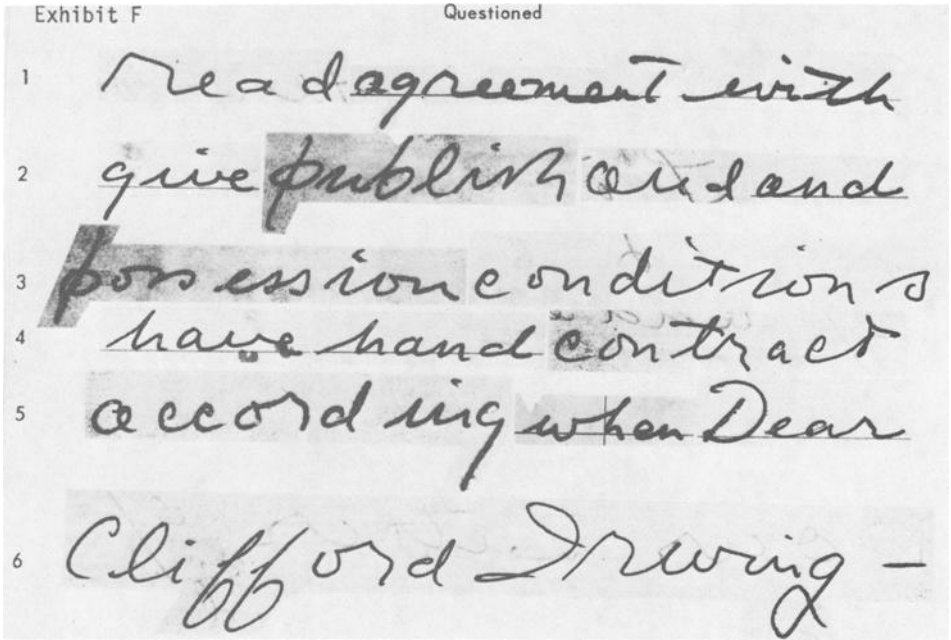 Exhibit F Questioned
1 read agreement with
2 give publish and and
3 possession conditions
4 have hand contract
5 according when Dear
6 Clifford Irving –